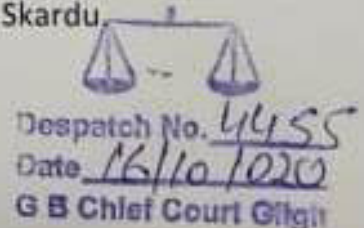 Skardu.
Despatch No. 4455
Date 16/10/020
G B Chief Court Gilgit